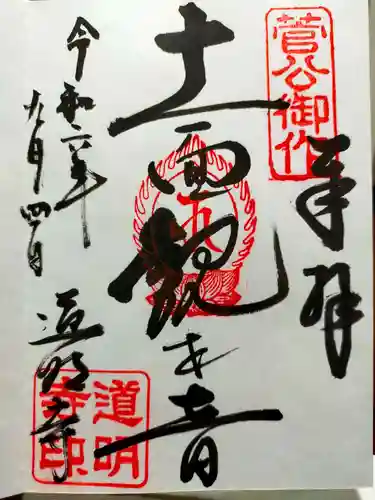 菅公御作
奉拝
十一面観世音
令和六年
九月四日
道明寺
道明
寺印